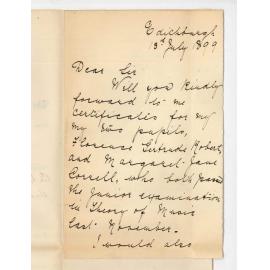 Edithburgh
13th July 1899
Dear Sir
Will you kindly
forward to me
certificates for my
my two pupils,
Florence Gertrude Robert,
and Margaret Jane
Correll, who both pass
the Junior examination
in Theory of Music
last November.
I would also